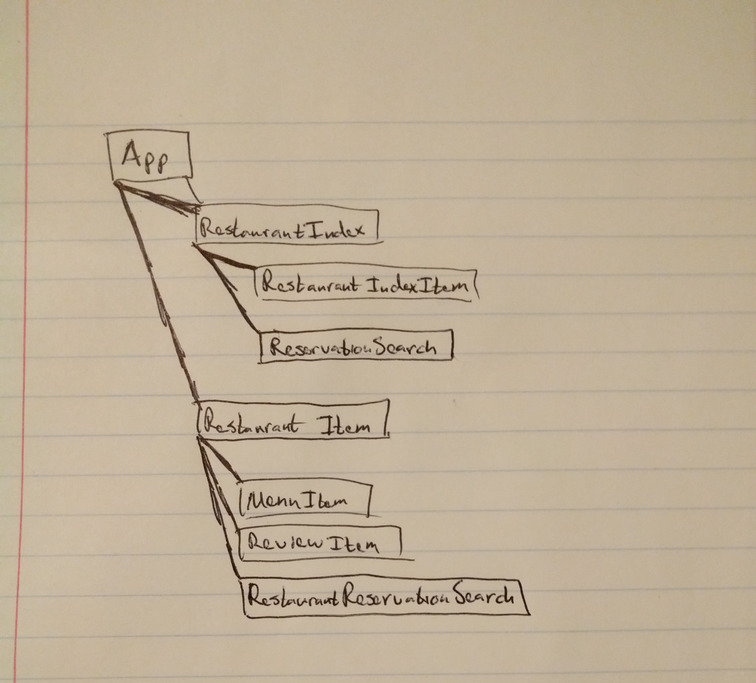 App
RestaurantIndex
Restaurant IndexItem
ReservationSearch
Restaurant Item
MenuItem
ReviewItem
RestaurantReservationSearch